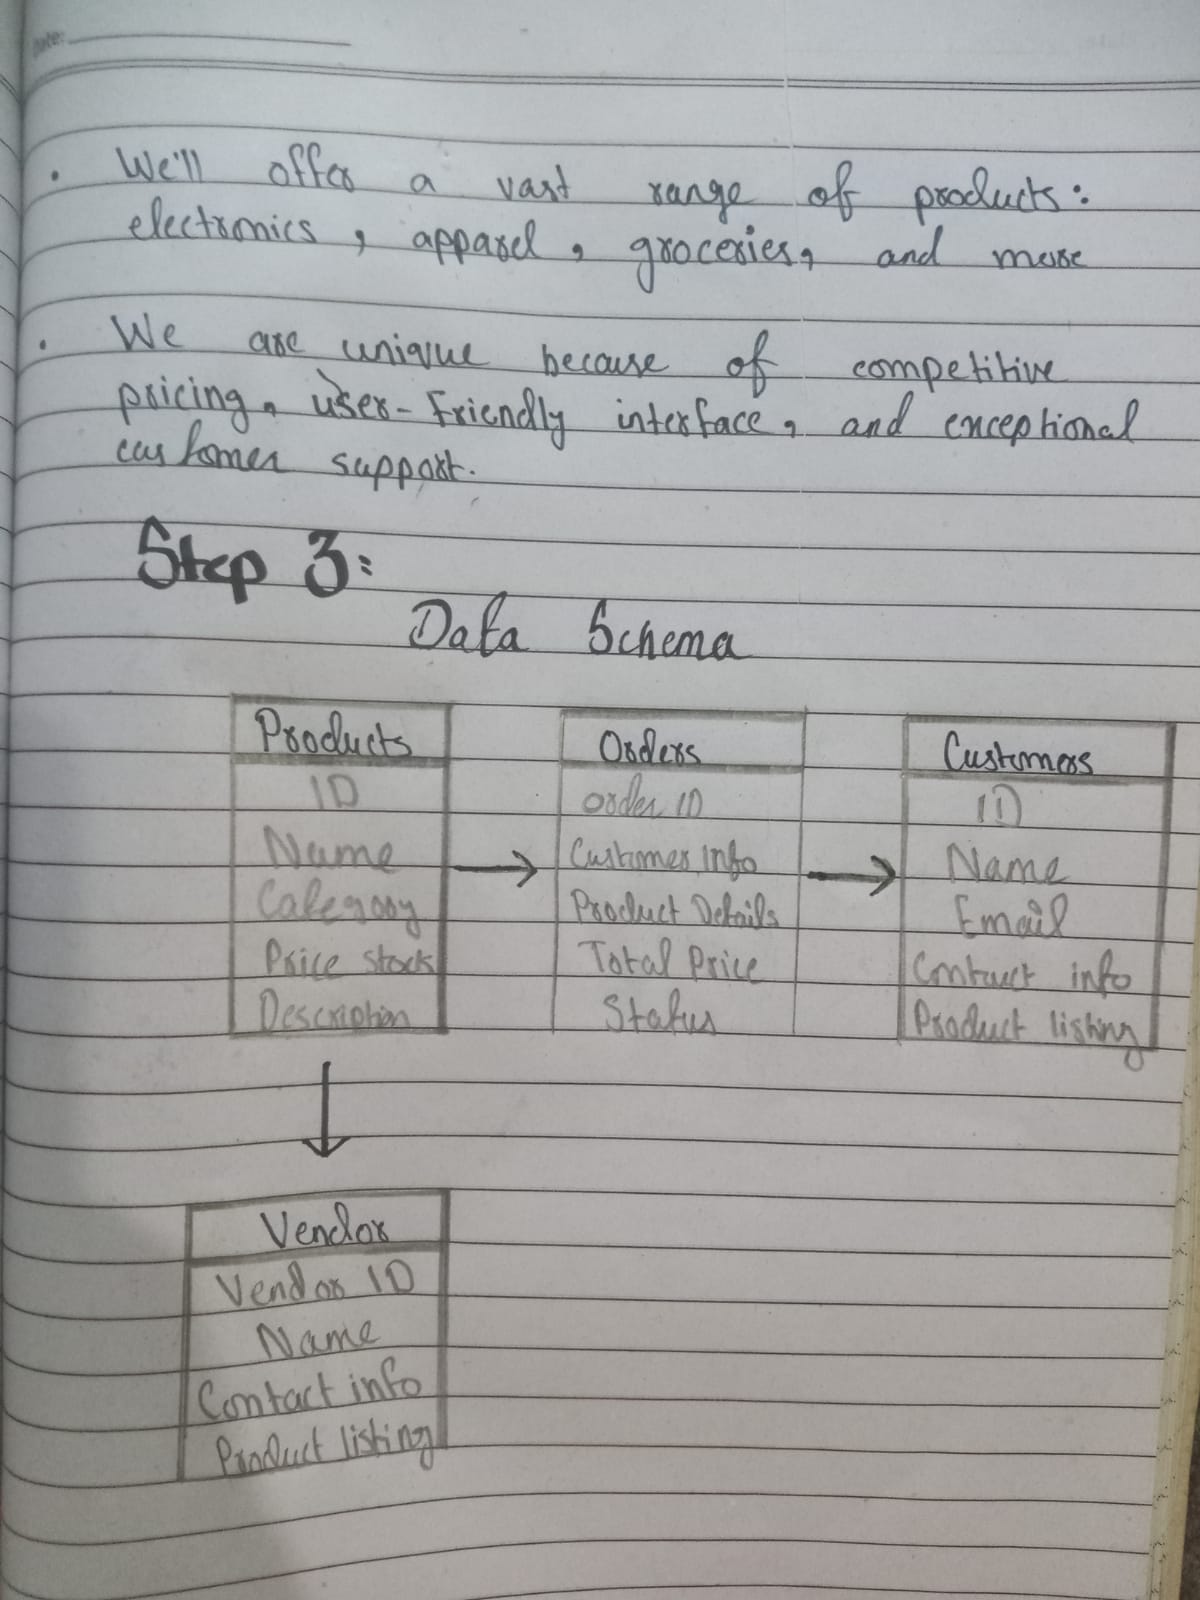 Date:
• We'll offer a vast range of products:
electronics, apparel, groceries, and more
• We are unique because of competitive
pricing, user-Friendly interface, and exceptional
customer support.
Step 3:
Data Schema
Products
ID
Name
Category
Price stock
Description
Orders
order ID
Customer Info
Product Details
Total Price
Status
Customers
ID
Name
Email
Contact info
Product listing
Vendor
Vendor ID
Name
Contact info
Product listing